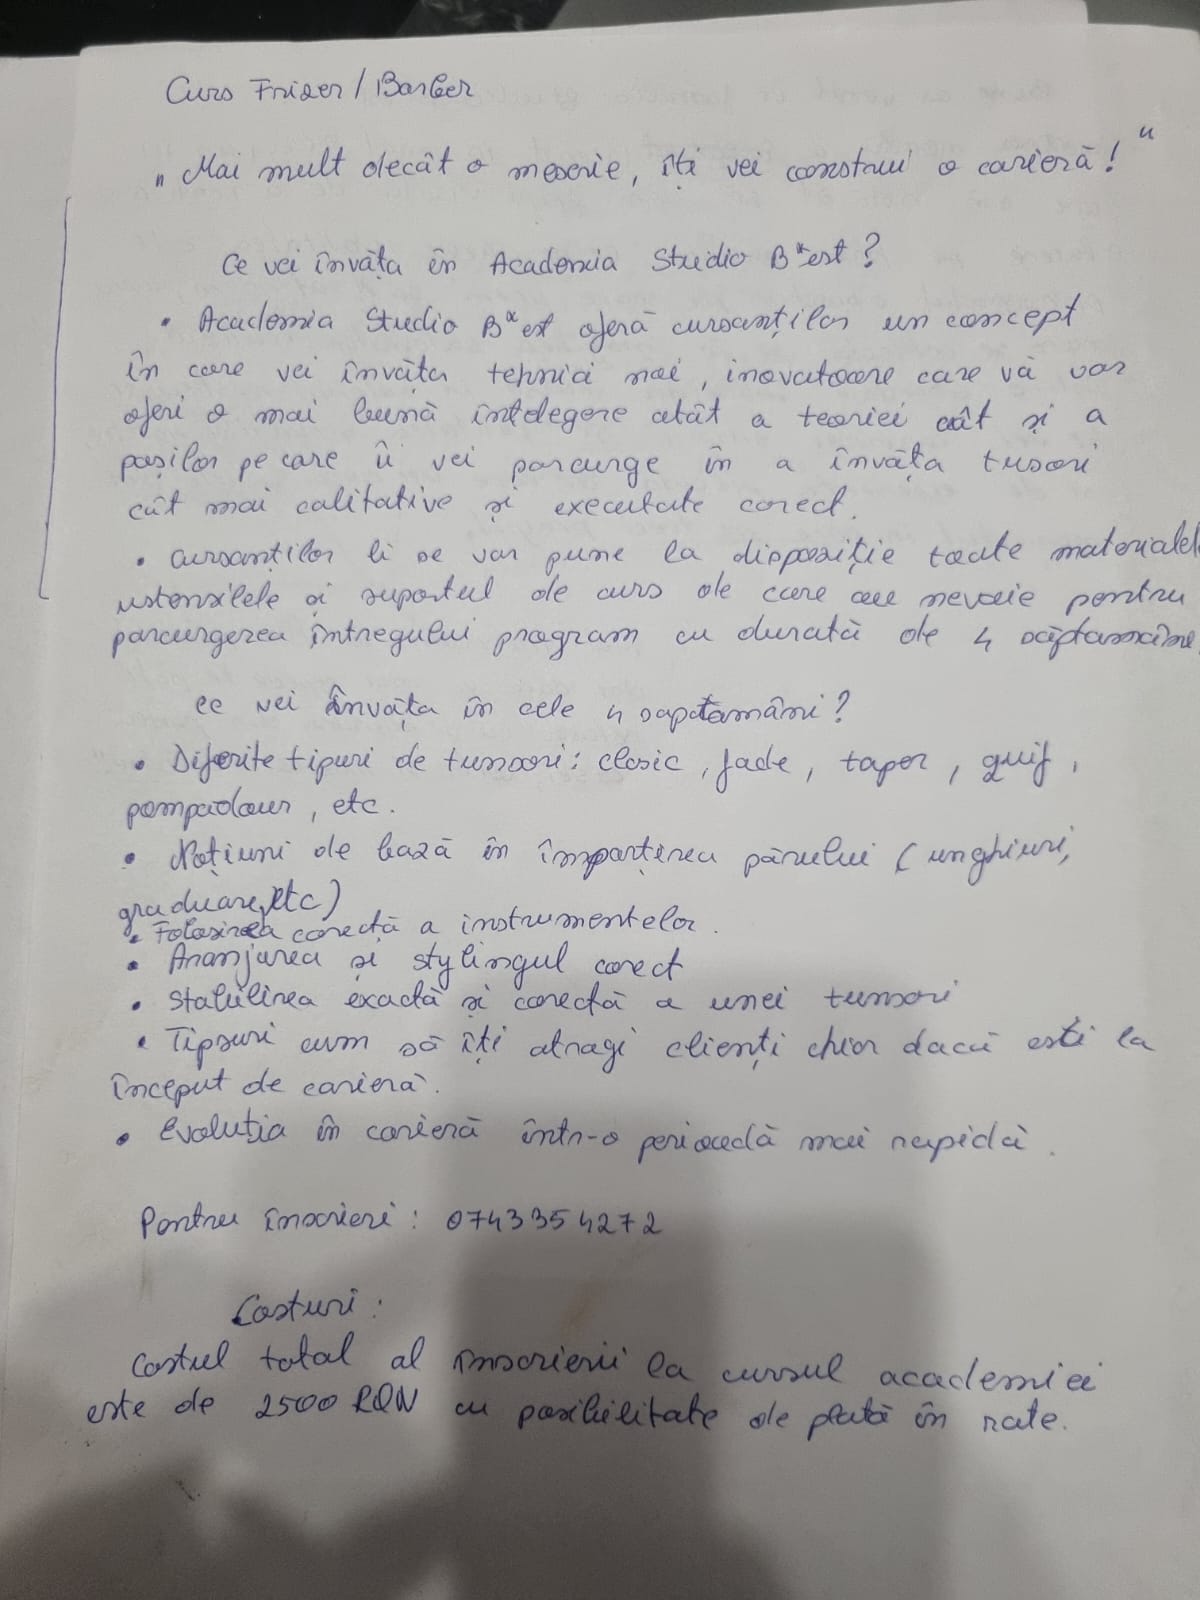 Curs Frizer / Barber
„Mai mult decât o meserie, îți vei construi o carieră!"
Ce vei învăța în Academia Studio B*est?
• Academia Studio B*est oferă cursanților un concept
în care vei învăța tehnici noi, inovatoare care vă vor
oferi o mai bună întelegere atât a teoriei cât și a
pașilor pe care îi vei parcurge în a învăța tunsori
cât mai calitative și executate corect.
• Cursanților li se vor pune la dispoziție toate materialel
ustensilele și suportul de curs de care au nevoie pentru
parcurgerea întregului program cu durată de 4 săptamâni
Ce vei învăța în cele 4 saptamâni?
• Diferite tipuri de tunsori: clasic, fade, taper, quif,
pompadour, etc.
• Noțiuni de bază în împarțirea părului (unghiuri,
graduare, etc)
• Folosirea corectă a instrumentelor.
• Aranjarea și stylingul corect
• Stabilirea exactă și corectă a unei tunsori
• Tipsuri cum să îți atragi clienți chiar dacă ești la
început de carieră.
• Evoluția în carieră într-o perioadă mai rapidă.
Pentru înscrieri: 0743354272
Costuri:
Costul total al înscrierii la cursul academiei
este de 2500 RON cu posibilitate de plată în rate.